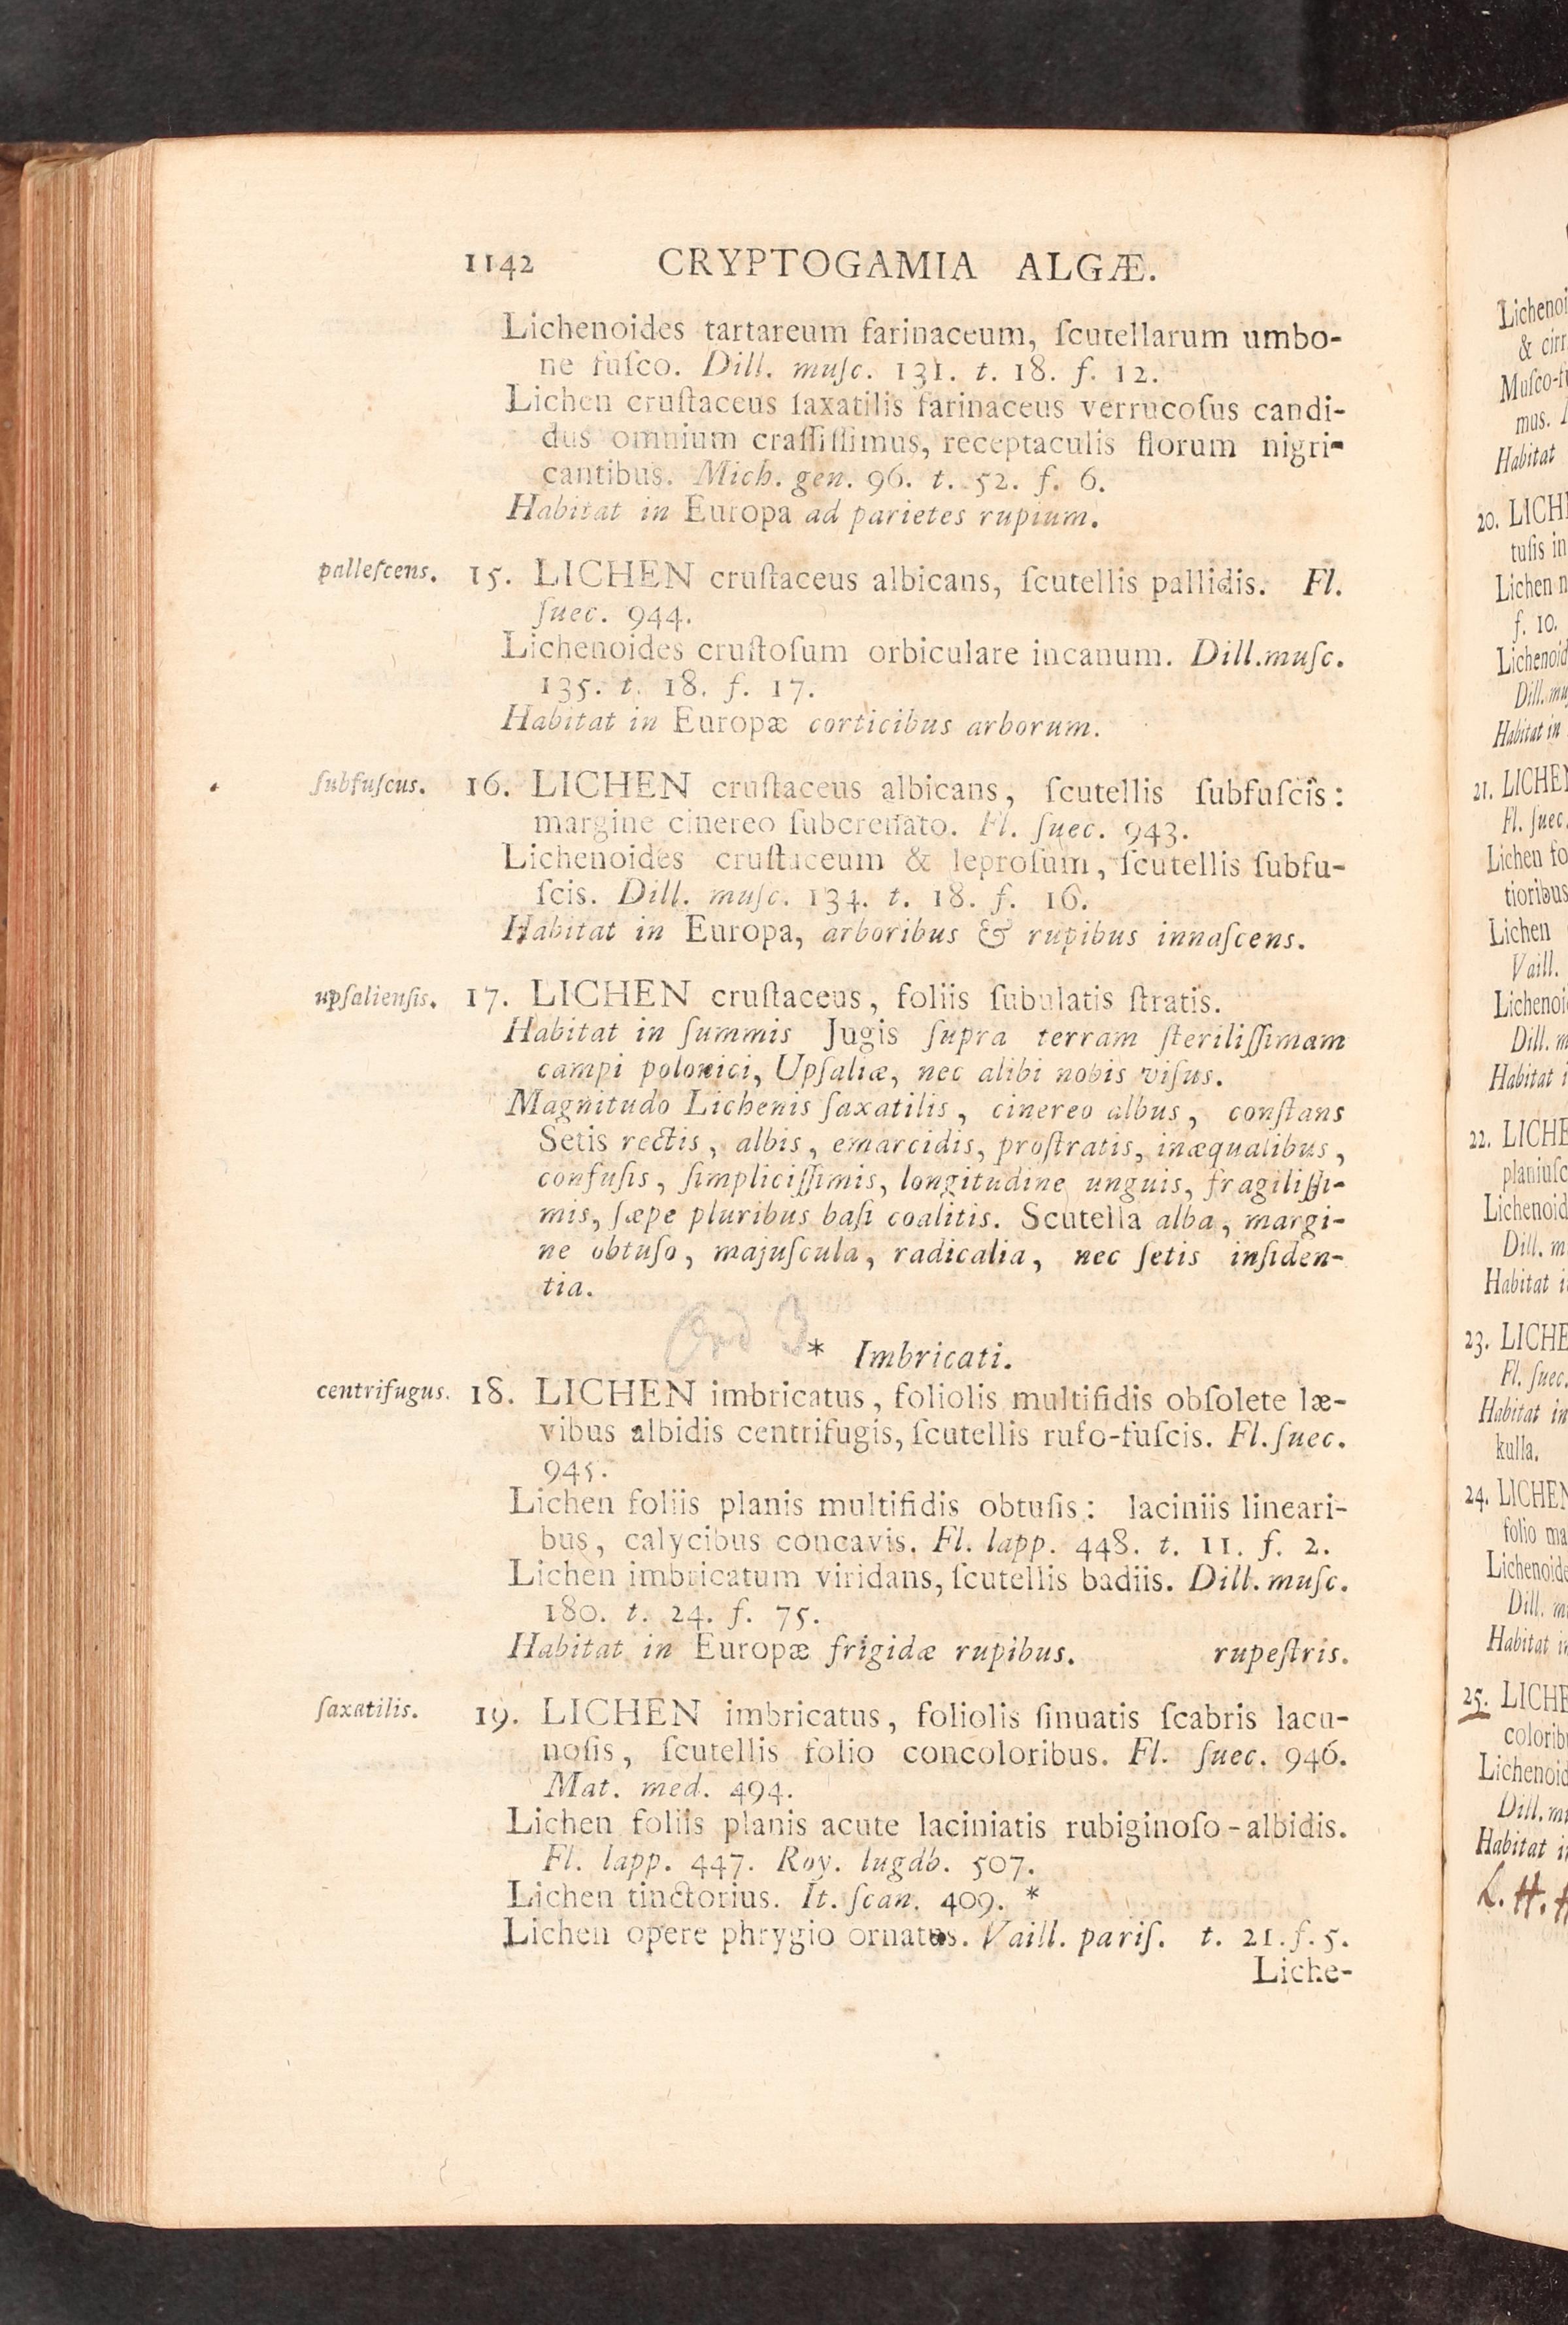 1142 CRYPTOGAMIA ALGÆ.
Lichenoides tartareum farinaceum, ſcutellarum umbo-
ne fuſco. Dill. muſc. 131. t. 18. f. 12.
Lichen cruſtaceus ſaxatilis farinaceus verrucoſus candi-
dus omnium craſſiſſimus, receptaculis florum nigri-
cantibus. Mich. gen. 96. t. 52. f. 6.
Habitat in Europa ad parietes rupium.
palleſcens. 15. LICHEN cruſtaceus albicans, ſcutellis pallidis. Fl.
ſuec. 944.
Lichenoides cruſtoſum orbiculare incanum. Dill.muſc.
135. t. 18. f. 17.
Habitat in Europæ corticibus arborum.
ſubfuſcus. 16. LICHEN cruſtaceus albicans, ſcutellis ſubfuſcis:
margine cinereo ſubcrenato. Fl. ſuec. 943.
Lichenoides cruſtaceum & leproſum, ſcutellis ſubfu-
ſcis. Dill. muſc. 134. t. 18. f. 16.
Habitat in Europa, arboribus & rupibus innaſcens.
upſalienſis. 17. LICHEN cruſtaceus, foliis ſubulatis ſtratis.
Habitat in ſummis Jugis ſupra terram ſteriliſſimam
campi polonici, Upſaliæ, nec alibi nobis viſus.
Magnitudo Lichenis ſaxatilis, cinereo albus, conſtans
Setis rectis, albis, emarcidis, proſtratis, inæqualibus,
confuſis, ſimpliciſſimis, longitudine unguis, fragiliſſi-
mis, ſæpe pluribus baſi coalitis. Scutella alba, margi-
ne obtuſo, majuſcula, radicalia, nec ſetis inſiden-
tia.
Ord 3
* Imbricati.
centrifugus. 18. LICHEN imbricatus, foliolis multifidis obſolete læ-
vibus albidis centrifugis, ſcutellis rufo-fuſcis. Fl. ſuec.
945.
Lichen foliis planis multifidis obtuſis: laciniis lineari-
bus, calycibus concavis. Fl. lapp. 448. t. 11. f. 2.
Lichen imbricatum viridans, ſcutellis badiis. Dill. muſc.
180. t. 24. f. 75.
Habitat in Europæ frigidæ rupibus. rupeſtris.
ſaxatilis. 19. LICHEN imbricatus, foliolis ſinuatis ſcabris lacu-
noſis, ſcutellis folio concoloribus. Fl. ſuec. 946.
Mat. med. 494.
Lichen foliis planis acute laciniatis rubiginoſo-albidis.
Fl. lapp. 447. Roy. lugdb. 507.
Lichen tinctorius. It. ſcan. 409. *
Lichen opere phrygio ornatus. Vaill. pariſ. t. 21. f. 5.
Liche-
& cirr
mus.
Habitat
20. LICHE
tuſis in
Lichen n
f. 10.
Lichenoid
Dill. mu
Habitat in
21. LICHEN
Fl. ſuec.
Lichen fo
tioribus
Lichen
Vaill.
Lichenoi
Dill. m
Habitat i
22. LICHE
planiuſc
Lichenoid
Dill. m
Habitat i
23. LICHE
Fl. ſuec.
Habitat in
kulla.
24. LICHEN
folio ma
Lichenoide
Dill. m
Habitat i
25. LICHE
colorib
Lichenoid
Dill. m
Habitat i
L. H.